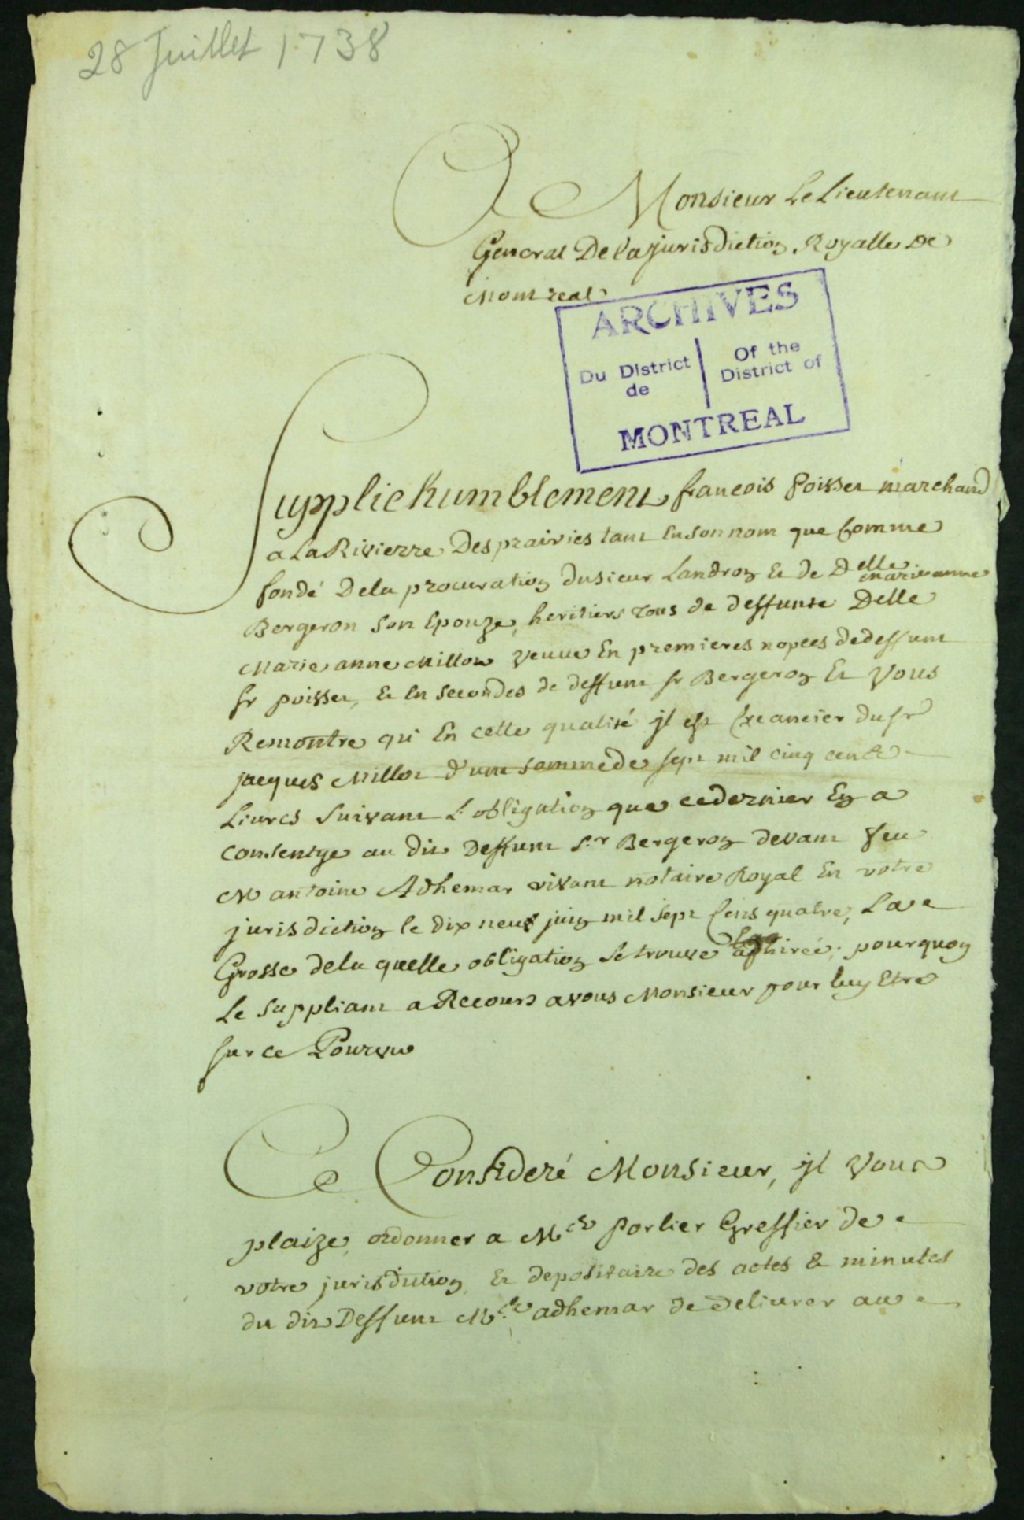 28 Juillet 1738
A Monsieur Le Lieutenant
General De la jurisdiction Royalle De
Montreal
ARCHIVES
Du District de
Of the District of
MONTREAL
Supplie humblement francois poisset marchand
a La Rivierre Des prairies tant En son nom que Comme
fondé De la procuration du sieur Landron & de Delle marie anne
Bergeron son Epouze, heritiers tous de deffunte Delle
Marie anne Millot veuve En premieres nopces de deffunt
Sr poisset, & En secondes de deffunt sr Bergeron Et vous
Remontre qu'En cette qualité jl est Creancier du sr
jacques Millot d'une somme de sept mil cinq cent
Livres suivant L'obligation que ce dernier En a
consentye au dit Deffunt Sr Bergeron devant feu
Me antoine Adhemar vivant notaire Royal En votre
jurisdiction le dix neuf juin mil sept Cens quatre, La
Grosse de la quelle obligation se trouve adhirée; pourquoy
Le suppliant a Recours a vous Monsieur pour luy Etre
sur ce Pourvu
Ce Consideré Monsieur, jl vous
plaize, ordonner a Me porlier Greffier de
votre jurisdiction & depositaire des actes & minutes
du dit Deffunt Me adhemar de delivrer au